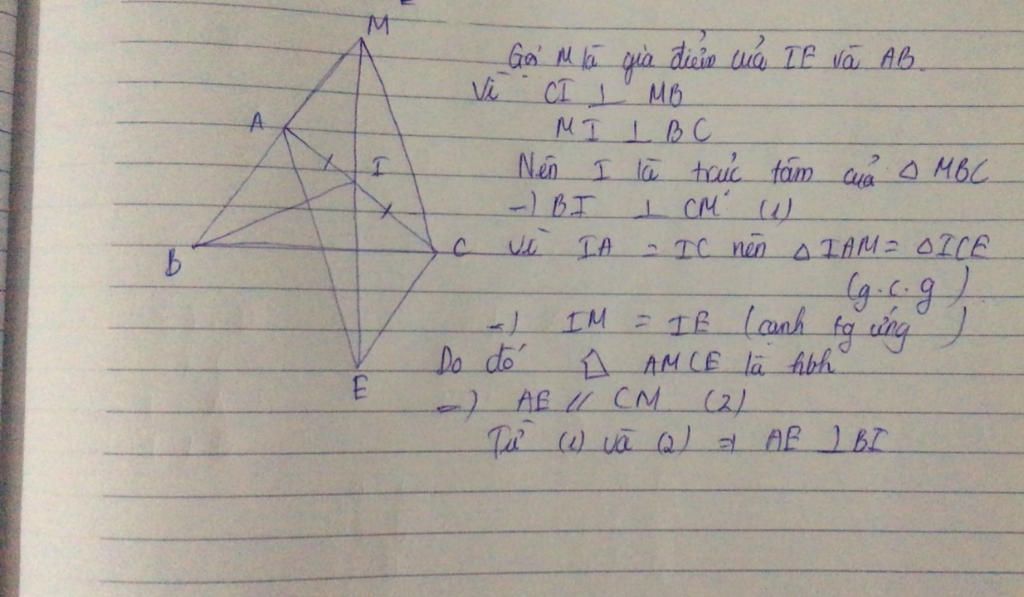 M
A
I
B
C
E
Gọi M là gia điểm của IE và AB.
Vì CI ⊥ MB
MI ⊥ BC
Nên I là trực tâm của △ MBC
→ BI ⊥ CM (1)
Vì IA = IC nên △IAM = △ICE
(g.c.g)
→ IM = IE (cạnh tg ứng)
Do đó AMCE là hbh
=) AE // CM (2)
Từ (1) và (2) => AE ⊥ BI